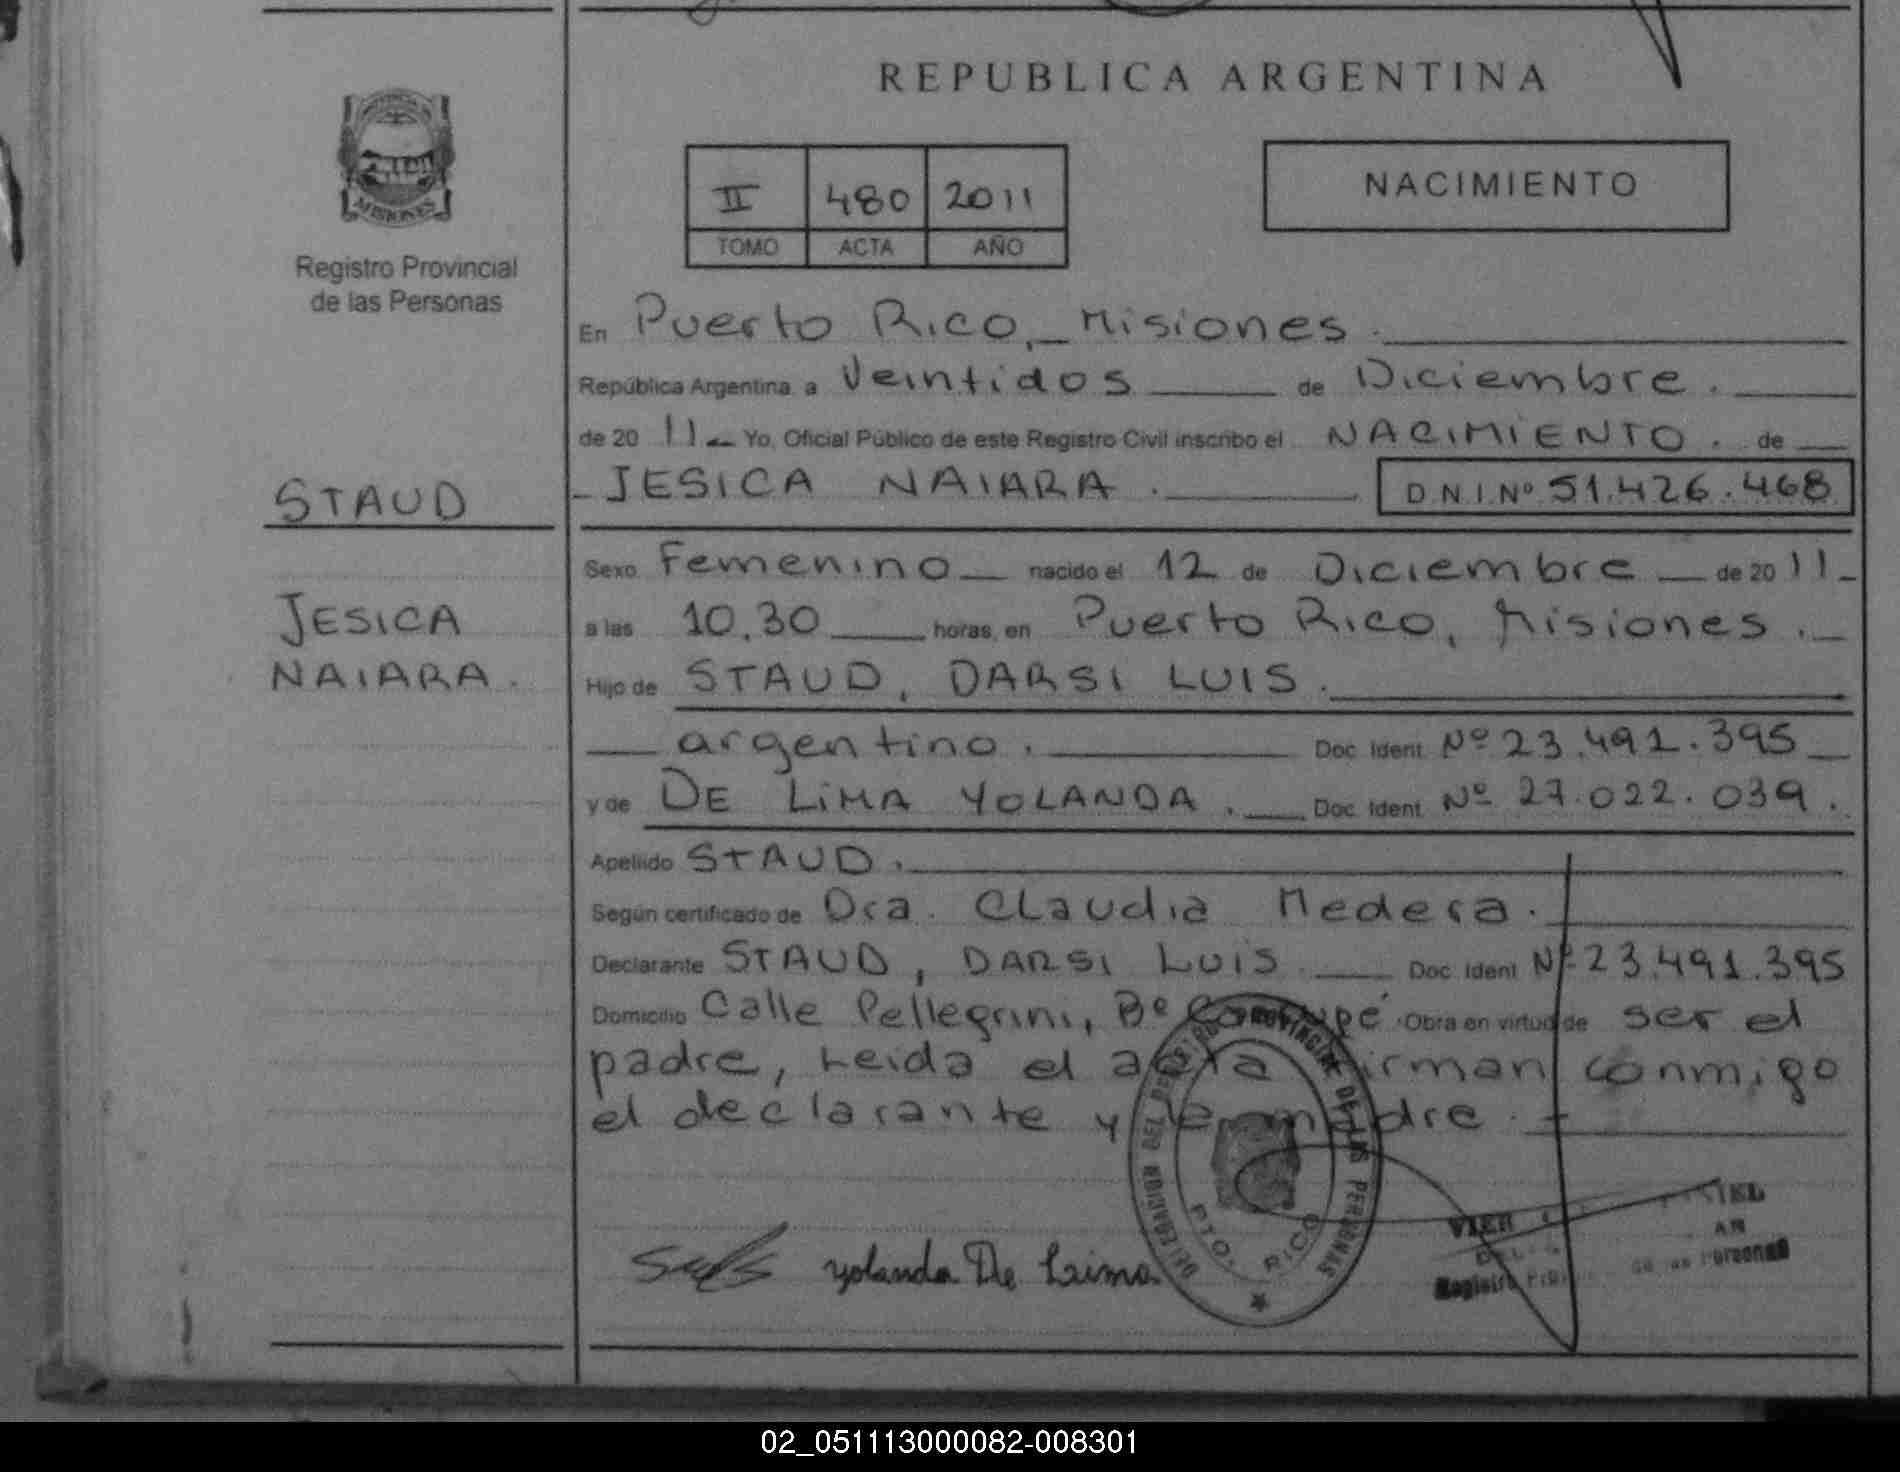 REPUBLICA ARGENTINA
MISIONES
Registro Provincial
de las Personas
II 480 2011
TOMO ACTA AÑO
NACIMIENTO
En Puerto Rico, Misiones.
República Argentina a Veintidos de Diciembre.
de 20 11 Yo, Oficial Público de este Registro Civil inscribo el NACIMIENTO. de
STAUD
JESICA NAIARA. D.N.I.Nº 51.426.468
Sexo Femenino nacido el 12 de Diciembre de 20 11
JESICA
NAIARA.
a las 10.30 horas, en Puerto Rico, Misiones.
Hijo de STAUD, DARSI LUIS.
argentino. Doc. Ident. Nº 23.491.395
y de DE LIMA YOLANDA. Doc. Ident. Nº 27.022.039.
Apellido STAUD.
Según certificado de Dra. Claudia Medera.
Declarante STAUD, DARSI LUIS. Doc. Ident Nº 23.491.395
Domicilio Calle Pellegrini, Bº Obra en virtud de ser el
padre, Leida el acta firman conmigo
el declarante y la madre.
DELEGACION DEL REGISTRO PROVINCIAL DE LAS PERSONAS
PTO. RICO
Yolanda De Lima
Registro
Personas
02_051113000082-008301